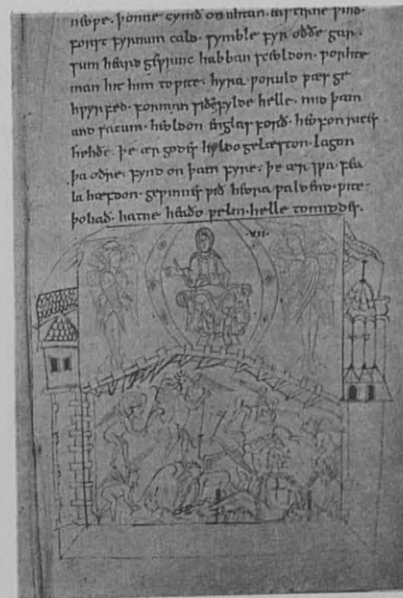 niwe · þonne cymð on uhtan easterne ƿind ·
forst fyrnum cald · symble fyr oððe gar ·
sum heard geƿrinc habban sceoldon · ƿorhte
man hit him to ƿite · hyra ƿoruld ƿæs ge
hƿyrfed · forman siðe fylde helle · mid þam
and sacum · heoldon englas forð · heofon rices
hehðe · þe ær godes hyldo gelæston · Lagon
þa oðre · fynd on þam fyre · þe ær sƿa fea
la hæfdon · geƿinnes ƿið heora ƿaldend · ƿite ·
þoliað · hatne heaðo ƿelm · helle tomiddes ·
·VII·